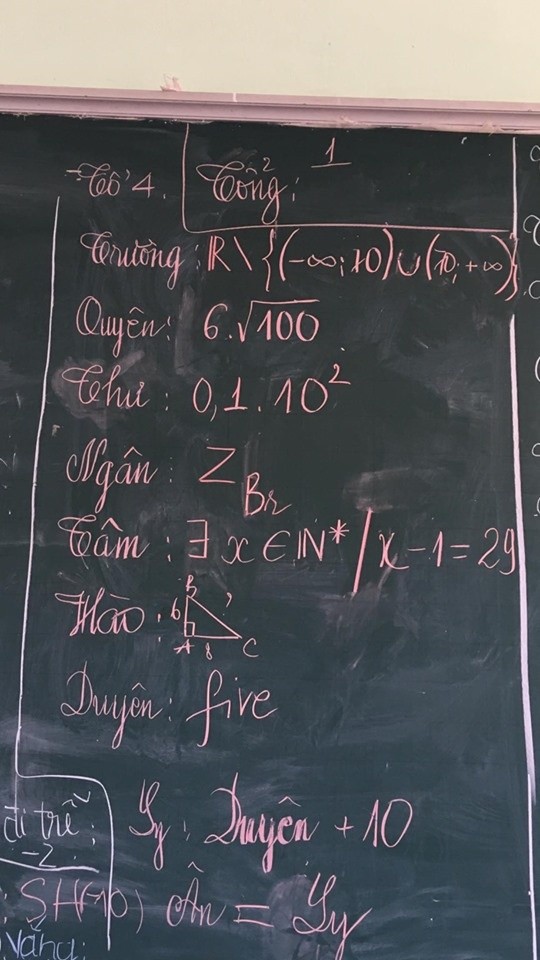 Tổ 4.
Tổng:
1
Trường: ℝ \ {(-∞; 10) ∪ (10; +∞)}
Quyên: 6.√100
Thư: 0,1.10²
Ngân: Z_Br
Tâm: ∃ x ∈ ℕ* / x - 1 = 29
Hào:
B
6
?
A
8
C
Duyên: five
đi trễ:
-2
Ly: Duyên + 10
SH(-10)
Ân = Ly
vắng: